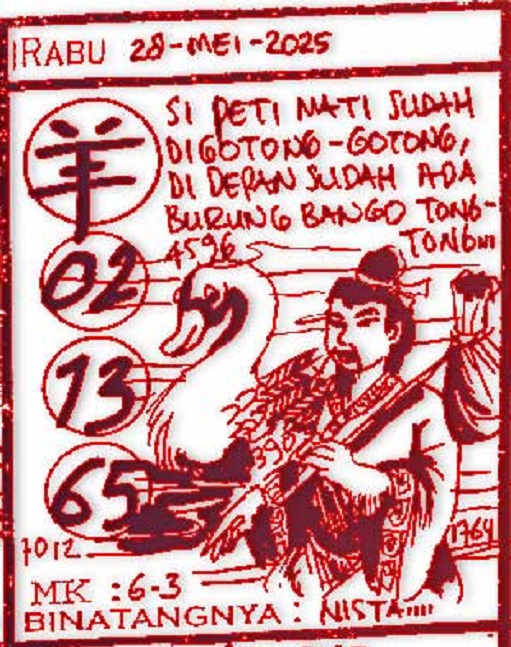 RABU 28-MEI-2025
羊
SI PETI MATI SUDAH
DIGOTONG-GOTONG,
DI DEPAN SUDAH ADA
BURUNG BANGO TONG-
TONG...
4596
02
13
65
7012
1764
MK : 6-3
BINATANGNYA : NISTA....